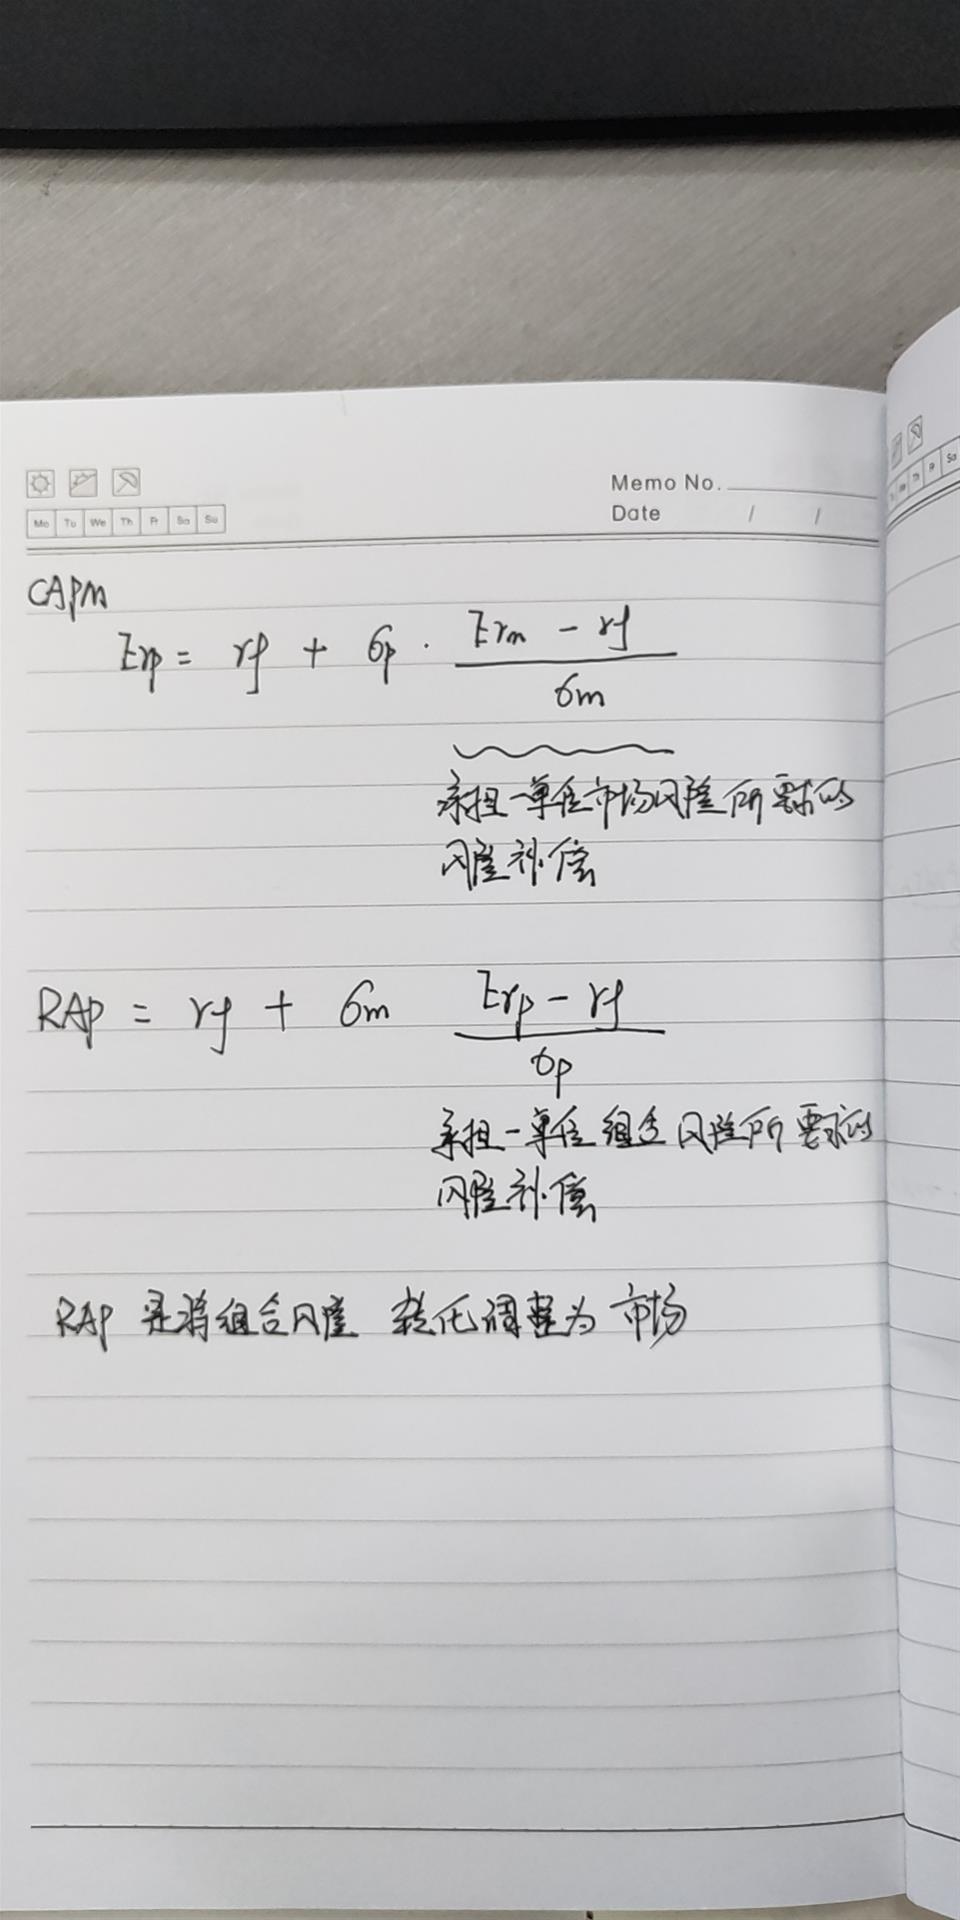 Memo No.
Mo Tu We Th Fr Sa Su
Date / /
CAPM
Erp = rf + σp · (Erm - rf) / σm
承担一单位市场风险所要求的
风险补偿
RAP = rf + σm (Erp - rf) / σp
承担一单位组合风险所要求的
风险补偿
RAP 是将组合风险 转化调整为 市场
Th Fr Sa